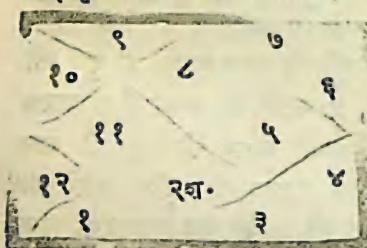 ९ ७
१० ८ ६
११ ५
१२ २श. ४
१ ३